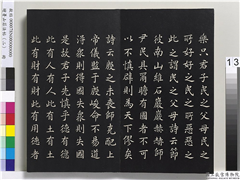 樂只君子民之父母民之
所好好之民之所惡惡之
此之謂民之父母詩云節
彼南山維石巖巖赫赫師
尹民具爾瞻有國者不可
以不慎辟則為天下僇矣
詩云殷之未喪師克配上
帝儀監于殷峻命不易道
得眾則得國失眾則失國
是故君子先慎乎德有德
此有人有人此有土有土
此有財有財此有用德者
13